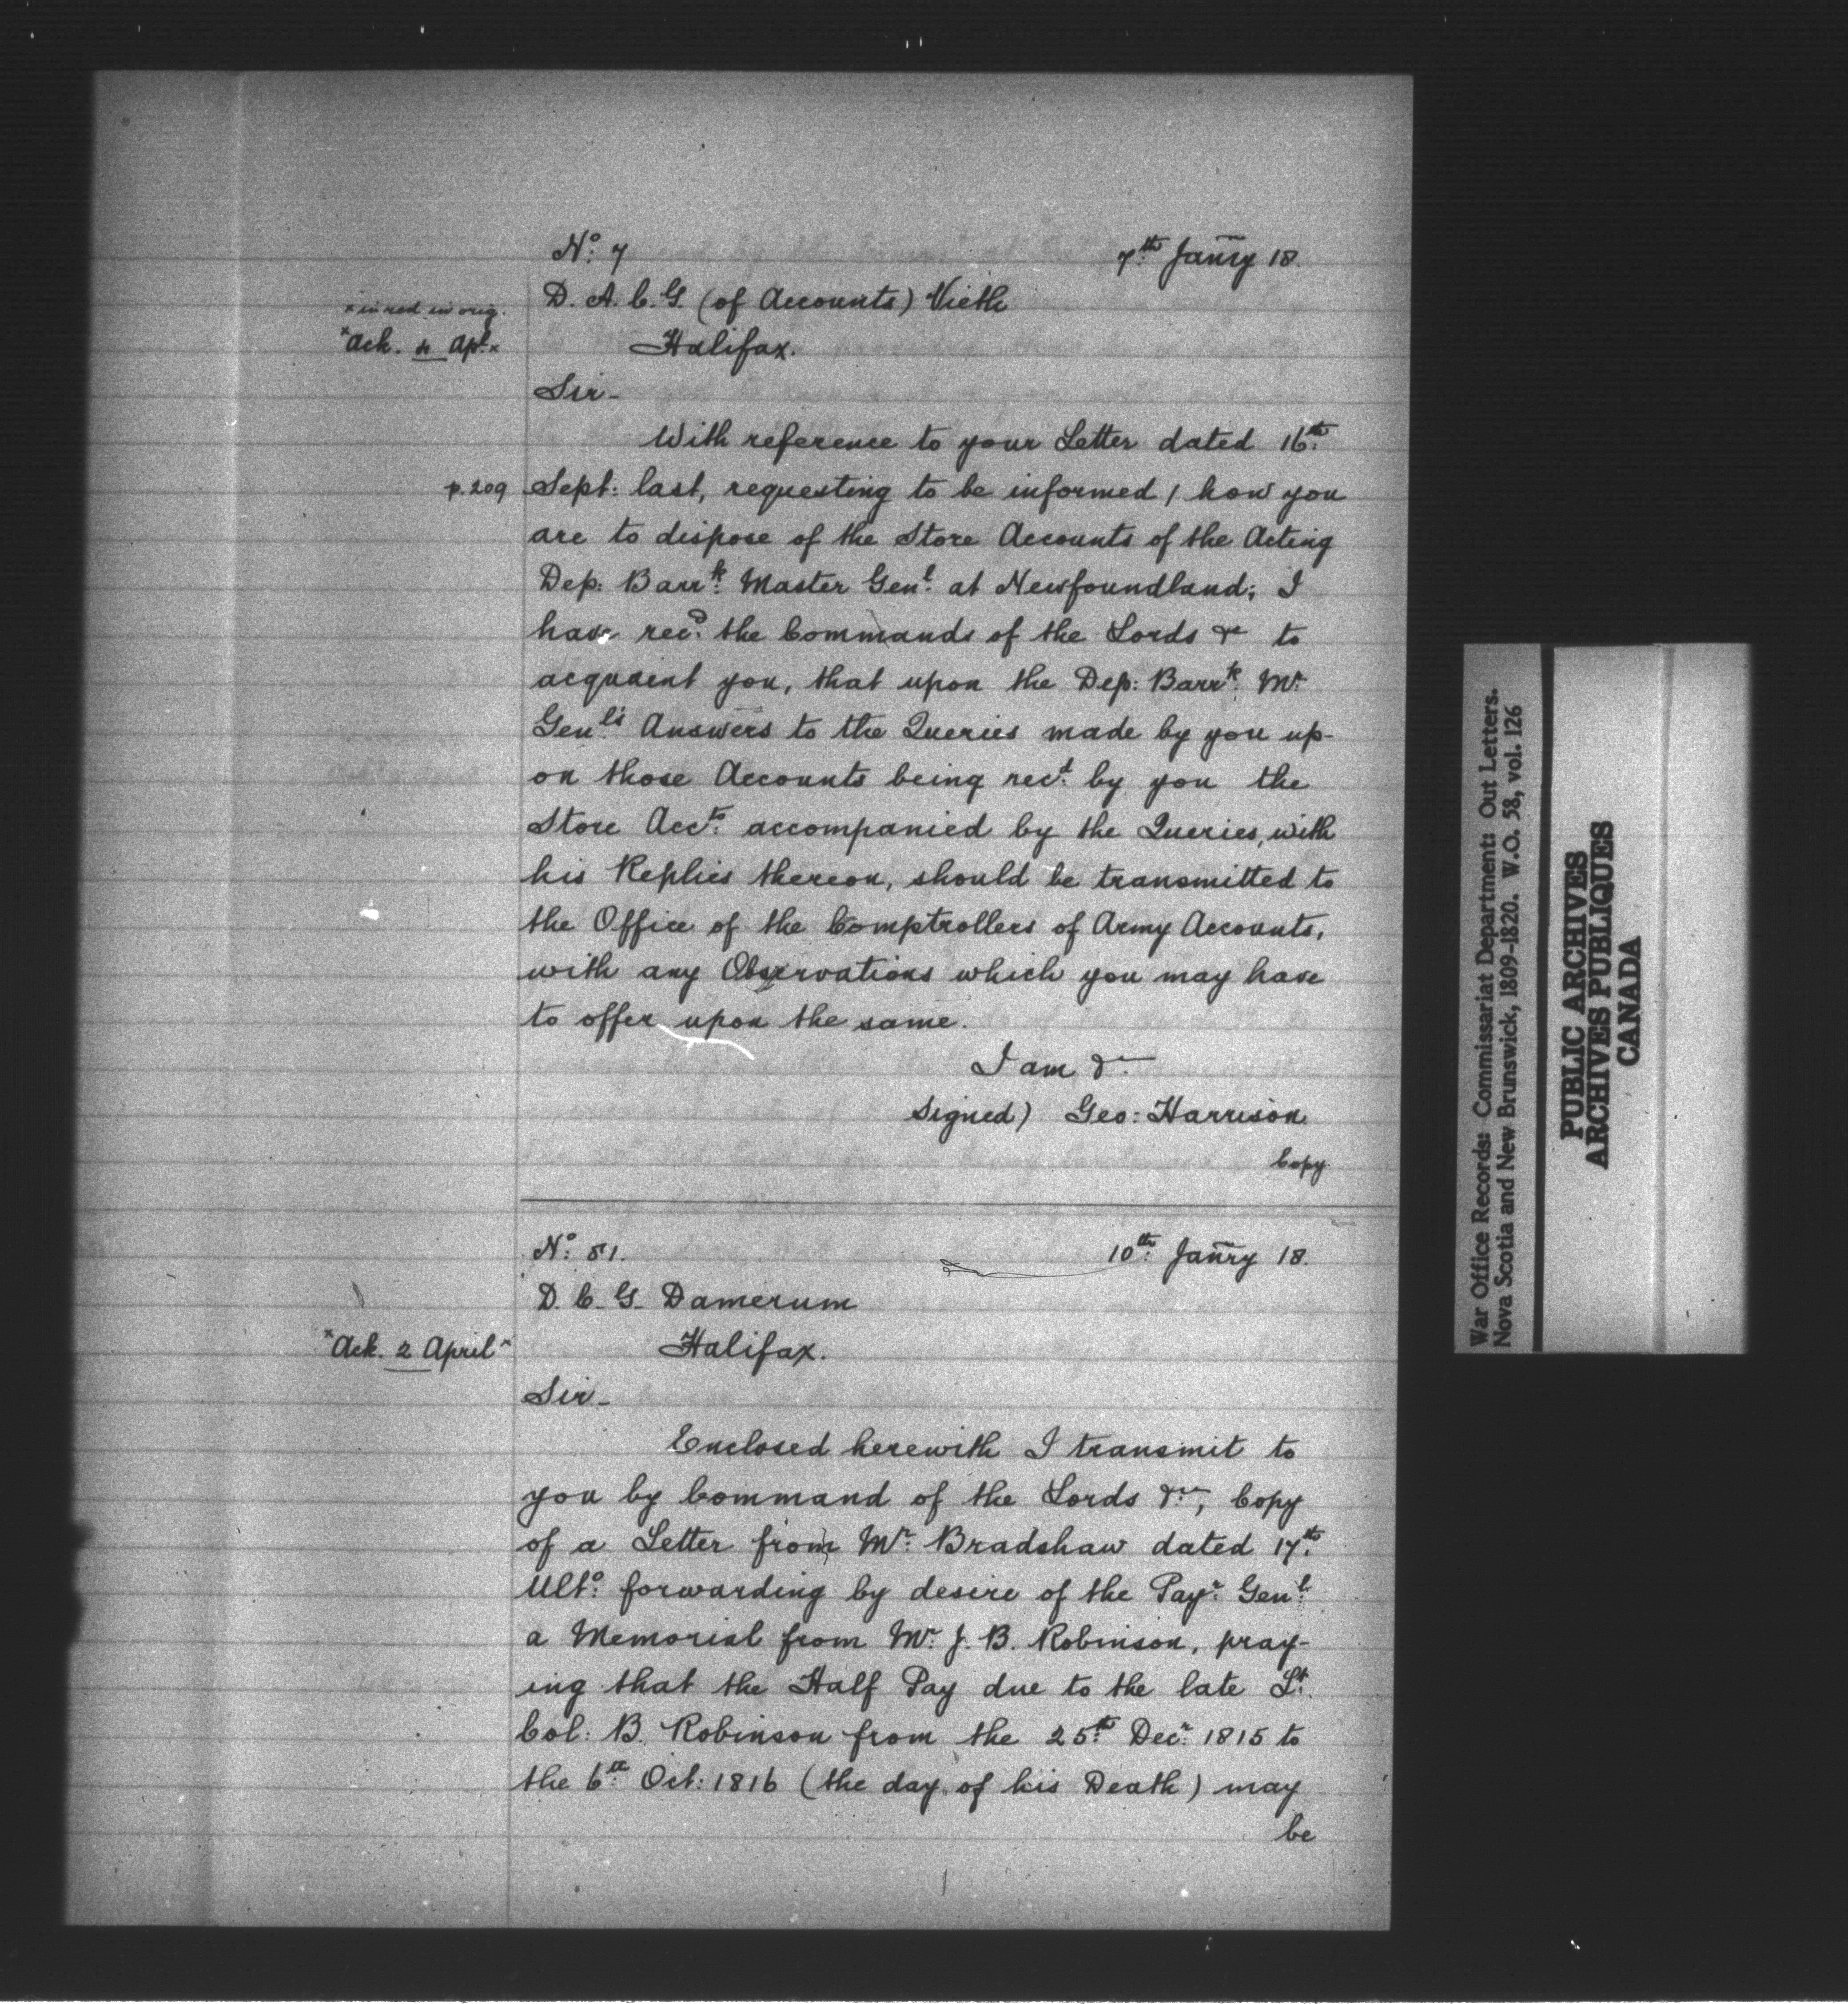 No: 7 7th Janry 18.
D. A. C. G. (of Accounts) Vieth
x in red in orig.
xAck. 4 Apl x
Halifax.
Sir-
With reference to your Letter dated 16th
p. 209
Sept: last, requesting to be informed / how you
are to dispose of the Store Accounts of the Acting
Dep: Barrk: Master Genl: at Newfoundland; I
have recd: the Commands of the Lords &c to
acquaint you, that upon the Dep: Barrk: Mr
Genl's Answers to the Queries made by you up-
on those Accounts being recd: by you the
Store Accts: accompanied by the Queries, with
his Replies thereon, should be transmitted to
the Office of the Comptrollers of Army Accounts,
with any Observations which you may have
to offer upon the same.
I am &c
Signed) Geo: Harrison
Copy
No: 51. 10th: Janry 18.
D. C. G. Damerum
xAck. 2 April x
Halifax.
Sir-
Enclosed herewith I transmit to
you by Command of the Lords &c, Copy
of a Letter from Mr: Bradshaw dated 17th
Ulto: forwarding by desire of the Payr: Genl:
a Memorial from Mr: J. B. Robinson, pray-
ing that the Half Pay due to the late Lt.
Col: B. Robinson from the 25th Decr: 1815 to
the 6th Oct: 1816 (the day of his Death) may
be
War Office Records: Commissariat Department: Out Letters.
Nova Scotia and New Brunswick, 1809-1820. W.O. 58, vol. 126
PUBLIC ARCHIVES
ARCHIVES PUBLIQUES
CANADA